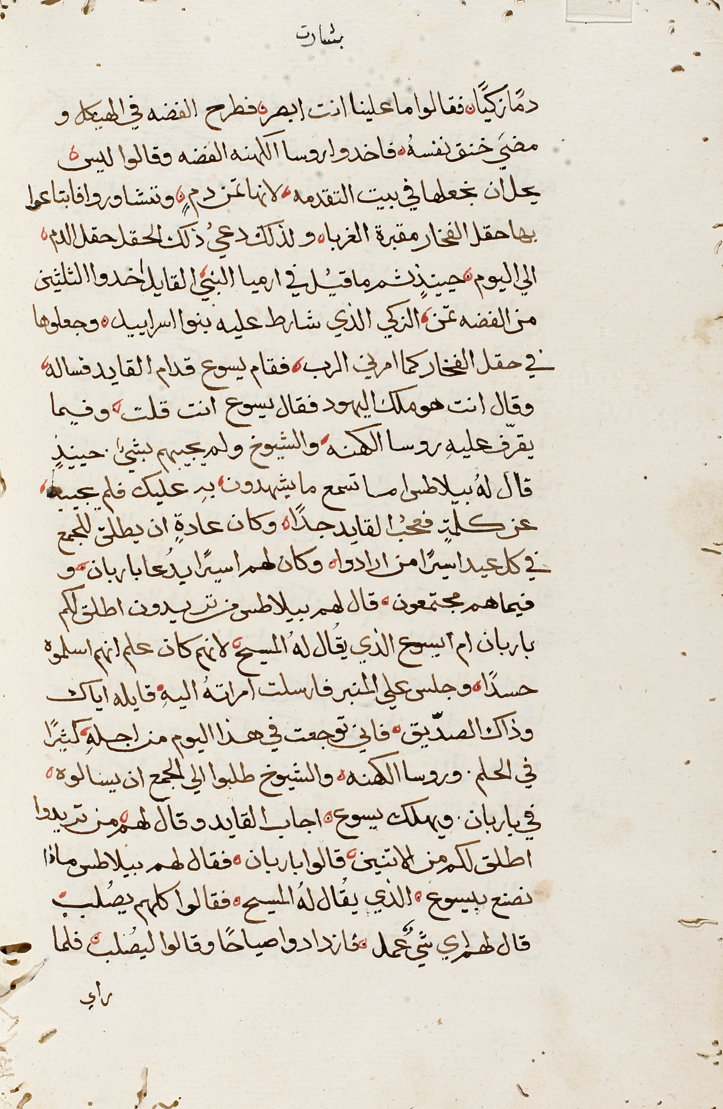 بشارت
دمًا زكيًا فقالوا ما علينا انت ابصر فطرح الفضه في الهيكل و
مضي خنق نفسهُ فاخدوا روسا الكهنه الفضه وقالوا ليس
يحل ان نجعلها في بيت التقدمه لانها ثمن دمٍ وتشاوروا فابتاعوا
بها حقل الفخار مقبرة الغربا ولذلك دعي ذلك الحقل حقل الدم
الي اليوم حينيذٍ تم ما قيل في ارميا النبي القايل اخدوا الثلثين
من الفضه ثمن الزكي الذي شارط عليه بنوا اسراييل وجعلوها
في حقل الفخار كما امرني الرب فقام يسوع قدام القايد فساله
وقال انت هو ملك اليهود فقال يسوع انت قلت وفيما
يقرّف عليهِ روسا الكهنه والشيوخ ولم يجيبهم بشيٍ حينيذٍ
قال لهُ بيلاطس اما تسمع ما يشهدون بهِ عليك فلم يجيبه
عن كلمةٍ فعجب القايد جدًا وكان عادةٍ ان يطلق للجمع
في كل عيد اسيرًا من ارادوا وكان لهم اسيرًا يدُعا باربان و
فيما هم مجتمعون قال لهم بيلاطس من تريدون اطلق لكم
باربان ام ايسوع الذي يقُال لهُ المسيح لانهم كان علم انهم اسلموه
حسدًا وجلس علي المنبر فارسلت امراتهُ اليهِ قايله اياك
وذاك الصدّيق فاني توجعت في هذا اليوم من اجلهِ كثيرًا
في الحلم وروسا الكهنه والشيوخ طلبوا الي الجمع ان يسالوه
في باربان ويهلك يسوع اجاب القايد وقال لهم من تريدوا
اطلق لكم من الاتنين قالوا باربان فقال لهم بيلاطس ماذا
نصنع بيسوع الذي يقُال لهُ المسيح فقالوا كلهم يصُلب
قال لهم اي شيٍ عمل فازدادوا صياحًا وقالوا ليصُلب فلما
راي